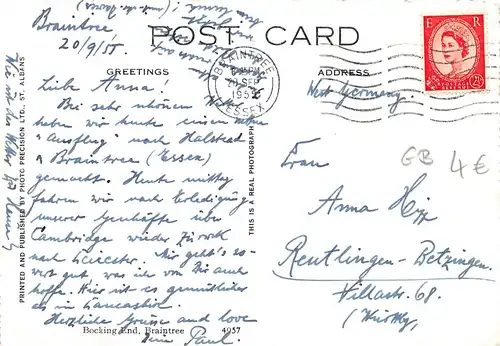 Braintree
20/9/55.
POST CARD
GREETINGS
ADDRESS
BRAINTREE
ESSEX
E R
2½
West Germany.
GB 4€
Liebe Anna.
Bei sehr schönem Wetter
haben wir heute einen netten
"Ausflug" nach Halstead
& Braintree (Essex)
gemacht. Heute mittag
fahren wir nach Erledigung
unserer Geschäfte über
Cambridge wieder zurück
nach Leicester. Mir geht's so-
weit gut, was ich von Dir auch
hoffe. Hier ist es gemütlicher
als in Lancashire.
Herzliche Grüsse and love
Dein Paul.
Bocking End, Braintree 4957
Frau
Anna Hipp
Reutlingen-Betzingen
Villastr. 68.
PRINTED AND PUBLISHED BY PHOTO PRECISION LTD., ST. ALBANS
THIS IS A REAL PHOTOGRAPH
Wie ist das Wetter bei